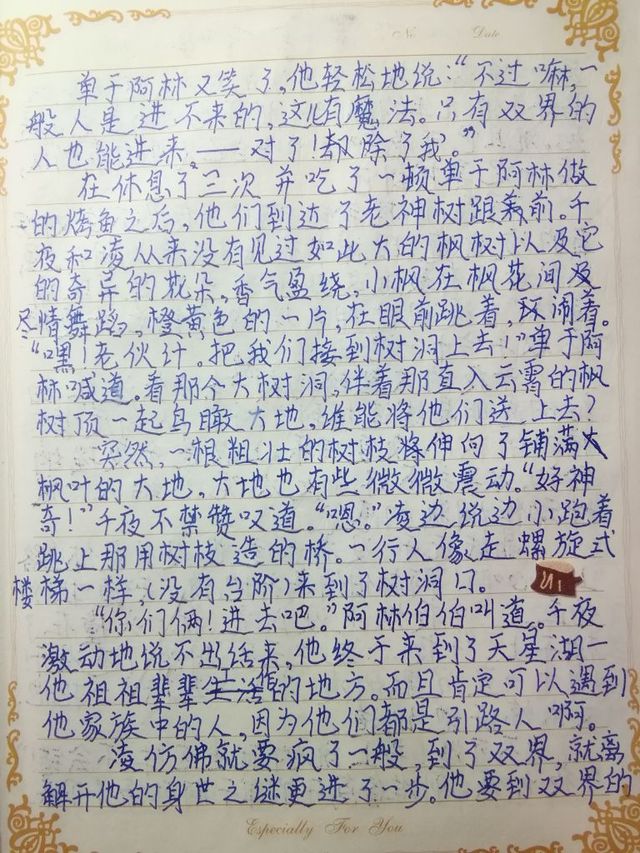 No   Date
单于阿林又笑了，他轻松地说：“不过嘛，一
般人是进不来的，这儿有魔法。只有双界的
人也能进来。——对了！却除了我。”
在休息了三次并吃了一顿单于阿林做
的烤鱼之后，他们到达了老神树跟前。千
夜和凌从来没有见过如此大的枫树以及它
的奇异的花朵，香气盈绕，小枫在枫花间
尽情舞蹈，橙黄色的一片，在眼前跳着，环闹着。
“嘿！老伙计。把我们接到树洞上去！”单于阿
林喊道。看那个大树洞，伴着那直入云霄的枫
树顶一起鸟瞰大地，谁能将他们送上去？
突然，一根粗壮的树枝将伸向了铺满
枫叶的大地，大地也有些微微震动。“好神
奇！”千夜不禁赞叹道。“嗯。”凌边说边小跑着
跳上那用树枝造的桥。一行人像走螺旋式
楼梯一样，（没有台阶）来到了树洞口。
“你们俩！进去吧。”阿林伯伯叫道。千夜
激动地说不出话来，他终于来到了天星湖一
他祖祖辈辈生活的地方。而且肯定可以遇到
他家族中的人，因为他们都是引路人啊。
凌仿佛就要疯了一般，到了双界，就离
解开他的身世之谜更进了一步。他要到双界的
Especially For You